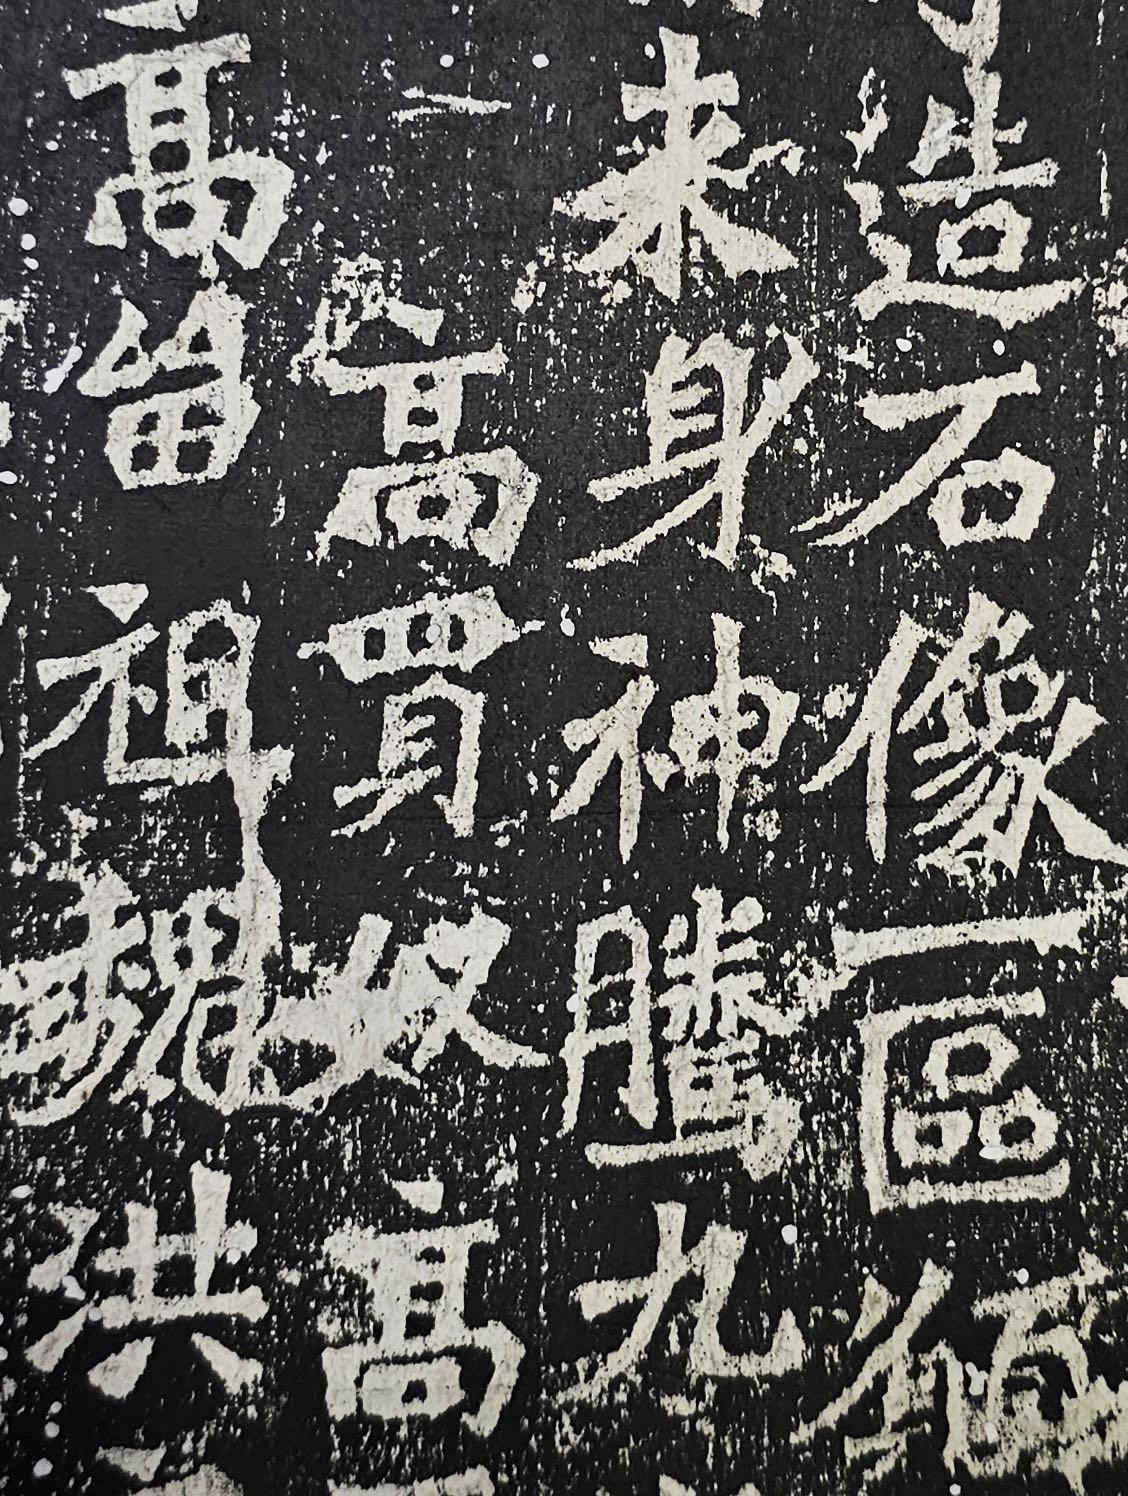 造石像一區
来身神騰九
高買奴高
高留祖魏洪